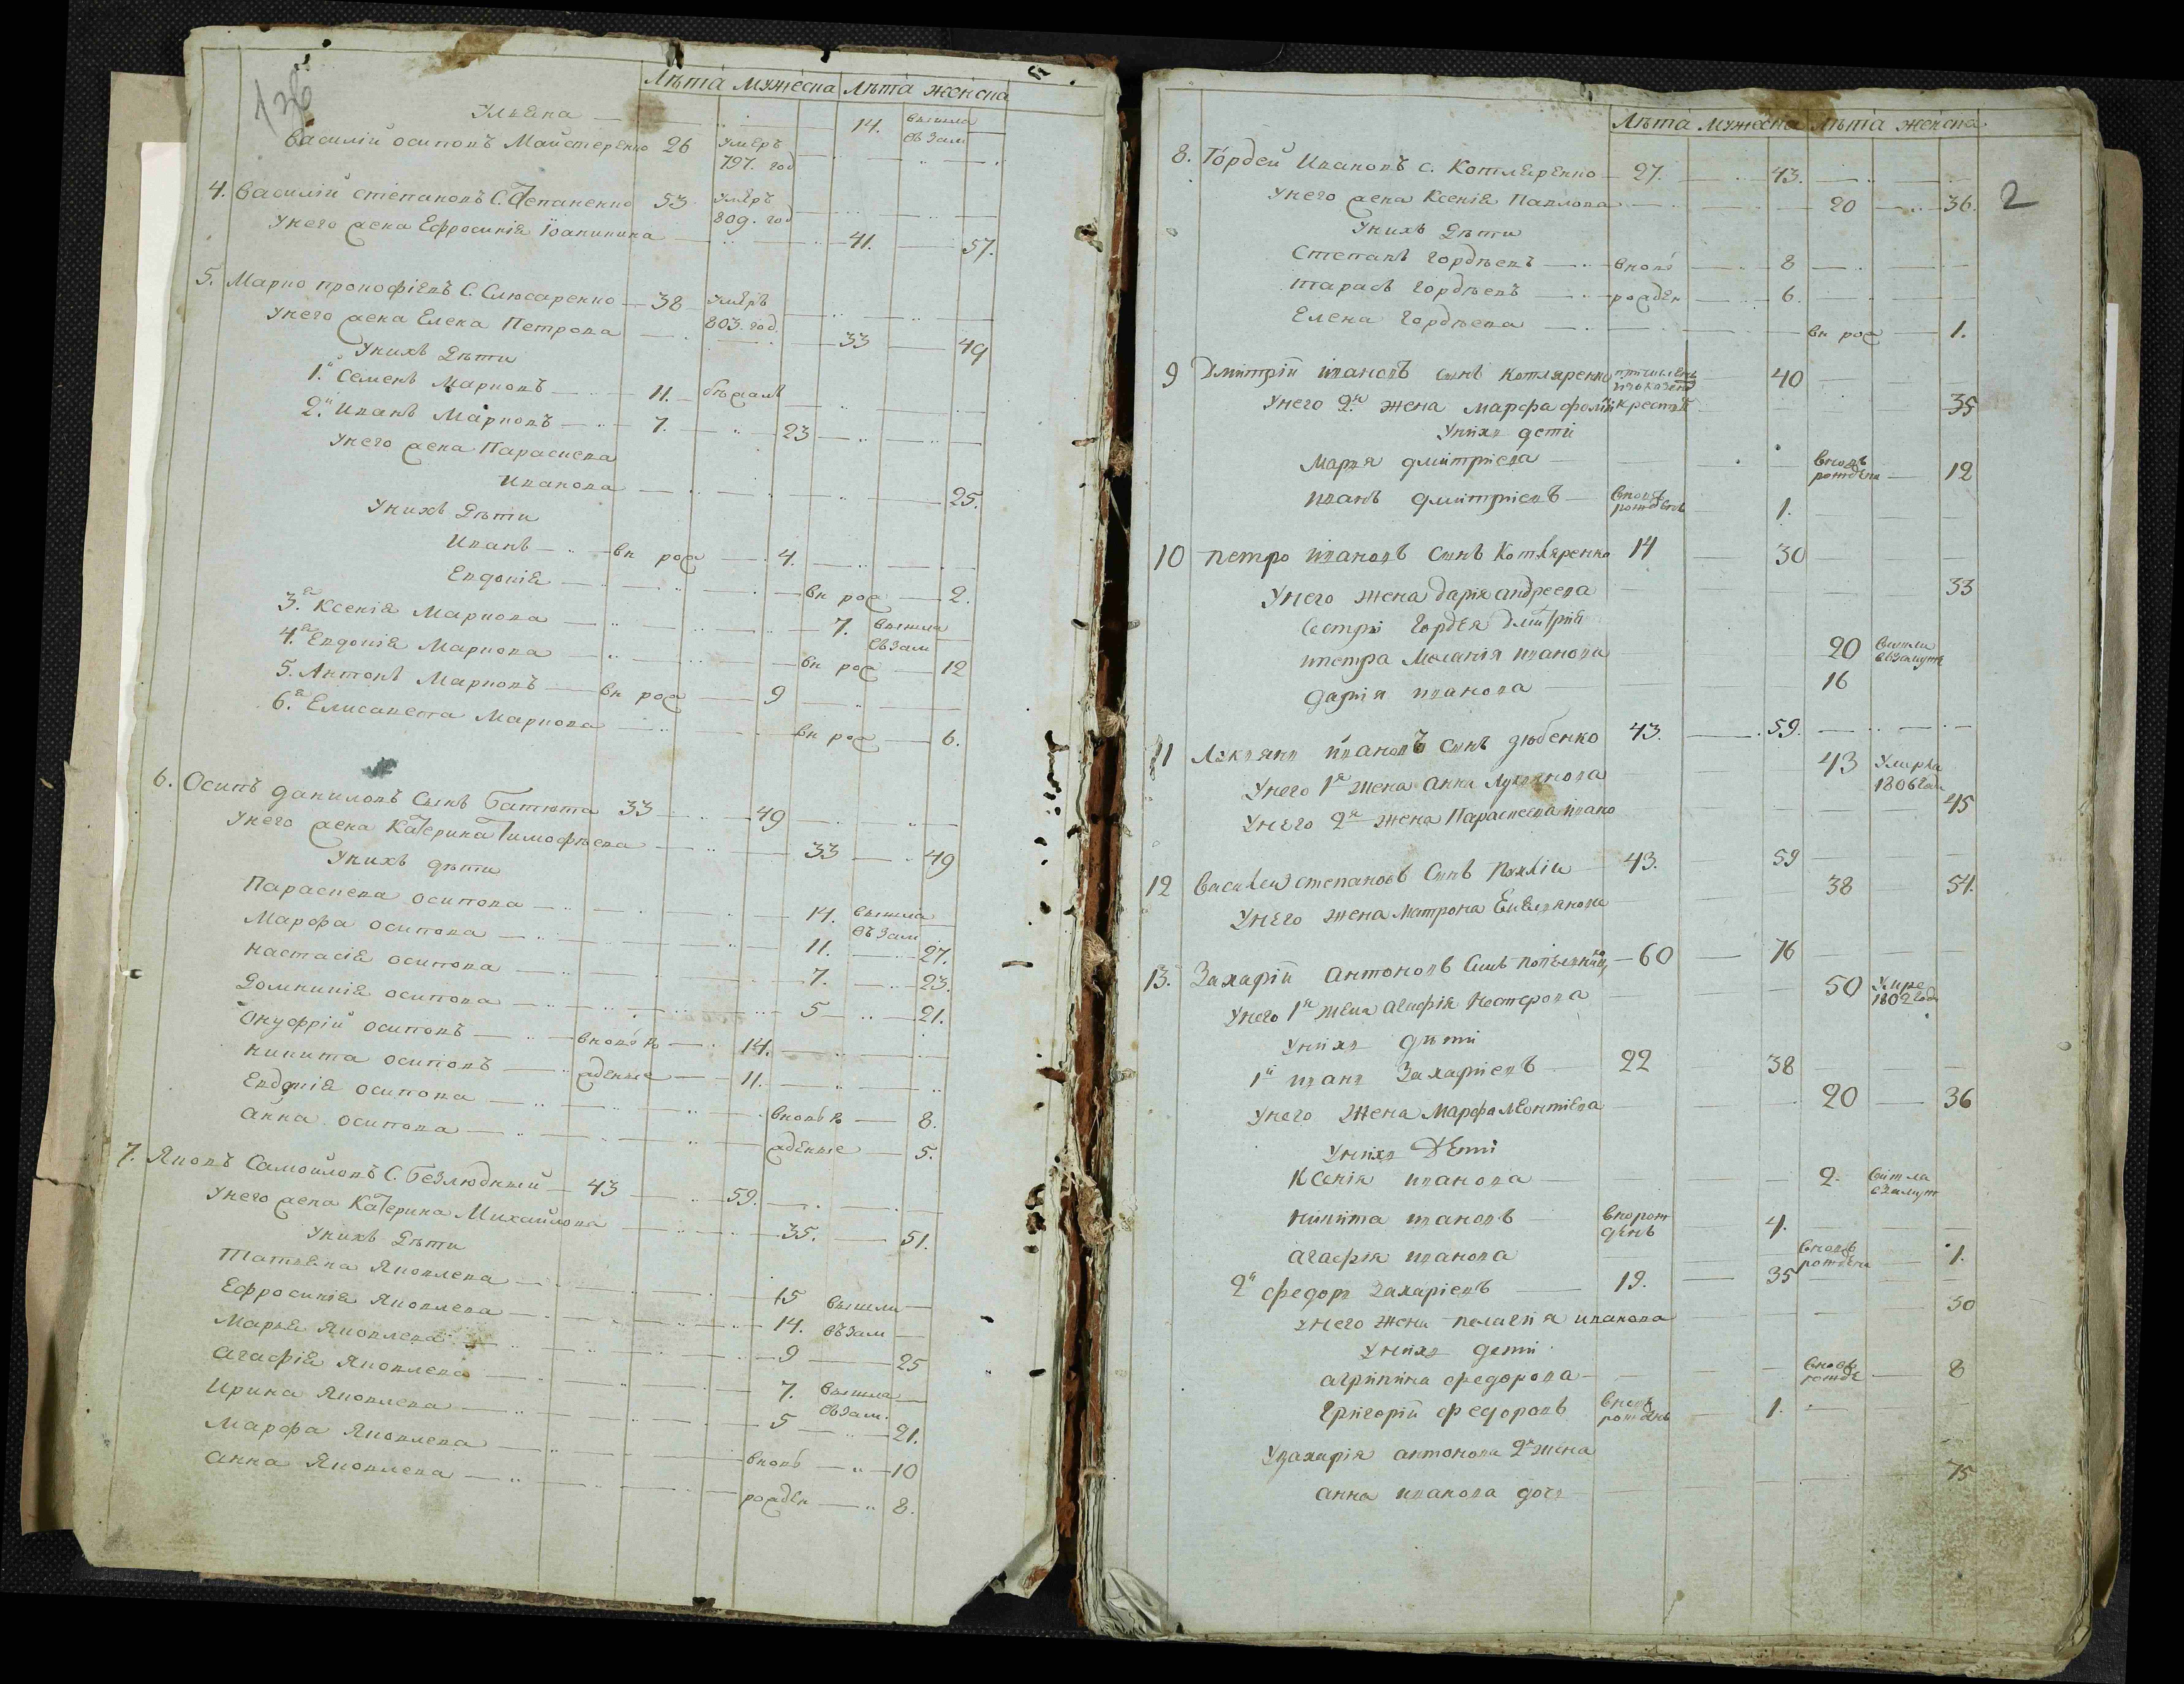 Лѣта Мужеска Лѣта женска
Ульяна — 14. вышла въ зам
Василій осиповъ Майстеренко 26 умеръ 797. год
4. Василій степановъ С. Степаненко 53 умеръ 809. год
У него жена Ефросинія Іоакимова 41. 57.
5. Марко прокофіевъ С. Слюсаренко 38 умеръ 803. год.
У него жена Елена Петрова 33 49
У нихъ дѣти
1.й Семенъ Марковъ 11. бѣжалъ
2.й Иванъ Марковъ 7. 23
У него жена Параскева
Иванова 25.
У нихъ дѣти
Иванъ вн рож 4.
Евдокія вн рож 2.
3.я Ксенія Маркова 7. вышла въ зам
4.я Евдокія Маркова вн рож 12
5. Антонъ Марковъ вн рож 9
6.я Елисавета Маркова вн рож 6.
6. Осипъ даниловъ Сынъ Батюта 33 49
У него жена Катерина Тимофѣева 33 49
У нихъ дѣти
Параскева осипова 14. вышла въ зам
Марфа осипова 11. 27.
Настасія осипова 7. 23.
Домникія осипова 5 21.
Онуфрій осиповъ вновь ро 14.
Никита осиповъ жденые 11.
Евдокія осипова вновь ро 8.
Анна осипова жденые 5.
7. Яковъ Самойловъ С. Безлюдный 43 59.
У него жена Катерина Михайлова 35. 51.
У нихъ дѣти
Татьяна Яковлева 15 вышли
Ефросинія Яковлева 14. въ зам
Марья Яковлева 9 25
Агафія Яковлева 7. вышла въ зам.
Ирина Яковлева 5 21.
Марфа Яковлева вновь 10
Анна Яковлева рожден 8.
Лѣта Мужеска Лѣта женска
2
8. Гордей Ивановъ С. Котляренко 27. 43.
У него жена Ксенія Павлова 20 36.
У нихъ дѣти
Степанъ Гордѣевъ вновь 8
Тарасъ Гордѣевъ рожден 6.
Елена Гордѣева вн рож 1.
9 Дмитрій ивановъ сынъ котляренко 40
У него 2.я жена Марфа крест 35
У нихъ дети
Марья дмитріева вновь рожден 12
иванъ дмитріевъ вновь рожденъ 1.
10 петро ивановъ Сынъ Котляренко 14 30
У него жена дарія андреева 33
Сестри Гордея дмитрія
ипетра Меланія иванова 20 вишли взамуж
дарія иванова 16
11 Лукьянъ ивановъ Сынъ зюбенко 43. 59.
У него 1я жена Анна Лукьянова 43 Умерла 1806 года
У него 2я жена Параскева ивано 45
12 Василей степановъ Сынъ 43. 59
У него жена Матрона Емельянова 38 54.
13. Захарій антоновъ Синъ 60 76
У него 1я жена Агафія Нестерова 50 Умре 1802 года
У нихъ дѣти
1й иванъ Захаріевъ 22 38
У него жена Марфа Леонтіева 20 36
У нихъ Дети
Ксенія иванова 2. вишла взамуж
никита ивановъ вно рож денъ 4.
агафія иванова вновь рождена 1.
2й федоръ Захаріевъ 19. 35
У него жена пелагія иванова 30
У нихъ дети
агрипина федорова вновь рожде 8
григорій федоровъ вновь рожденъ 1.
У захарія антонова 2я жена
анна иванова дочь 75